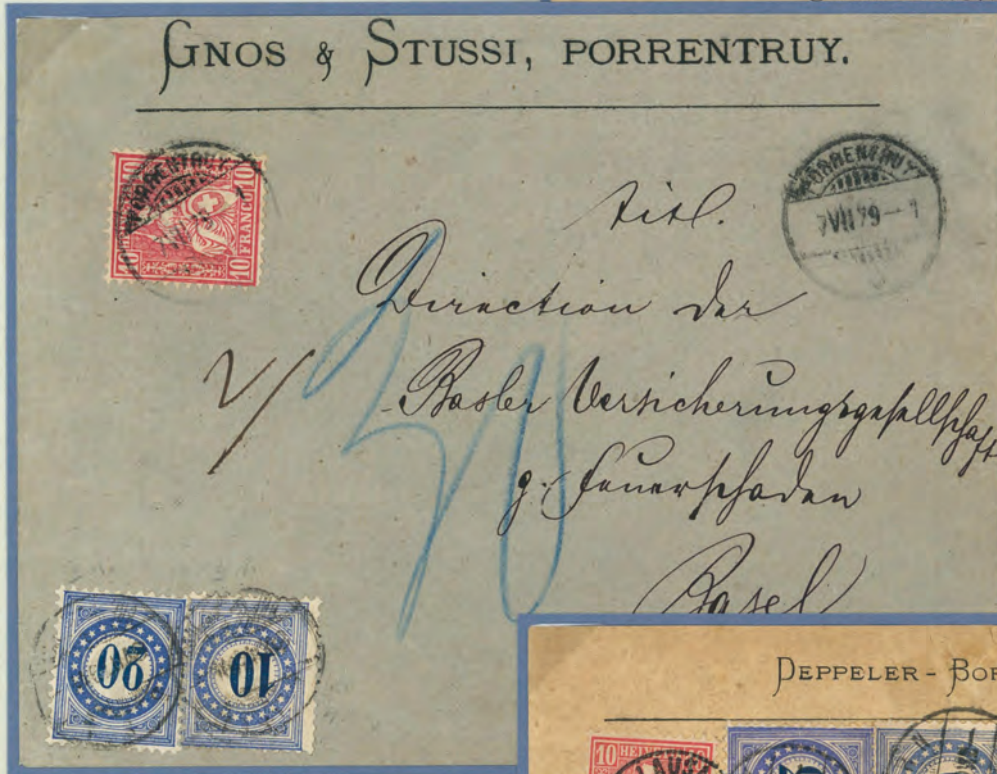 GNOS & STUSSI, PORRENTRUY.
10 10
10 FRANCO
PORRENTRUY
PORRENTRUY
7 VII 79 - 1
titl.
Direction der
Basler Versicherungsgesellschaft
g. Feuerschaden
Basel
30
20
10
DEPPELER - BOR
10 HELVE
LAUS